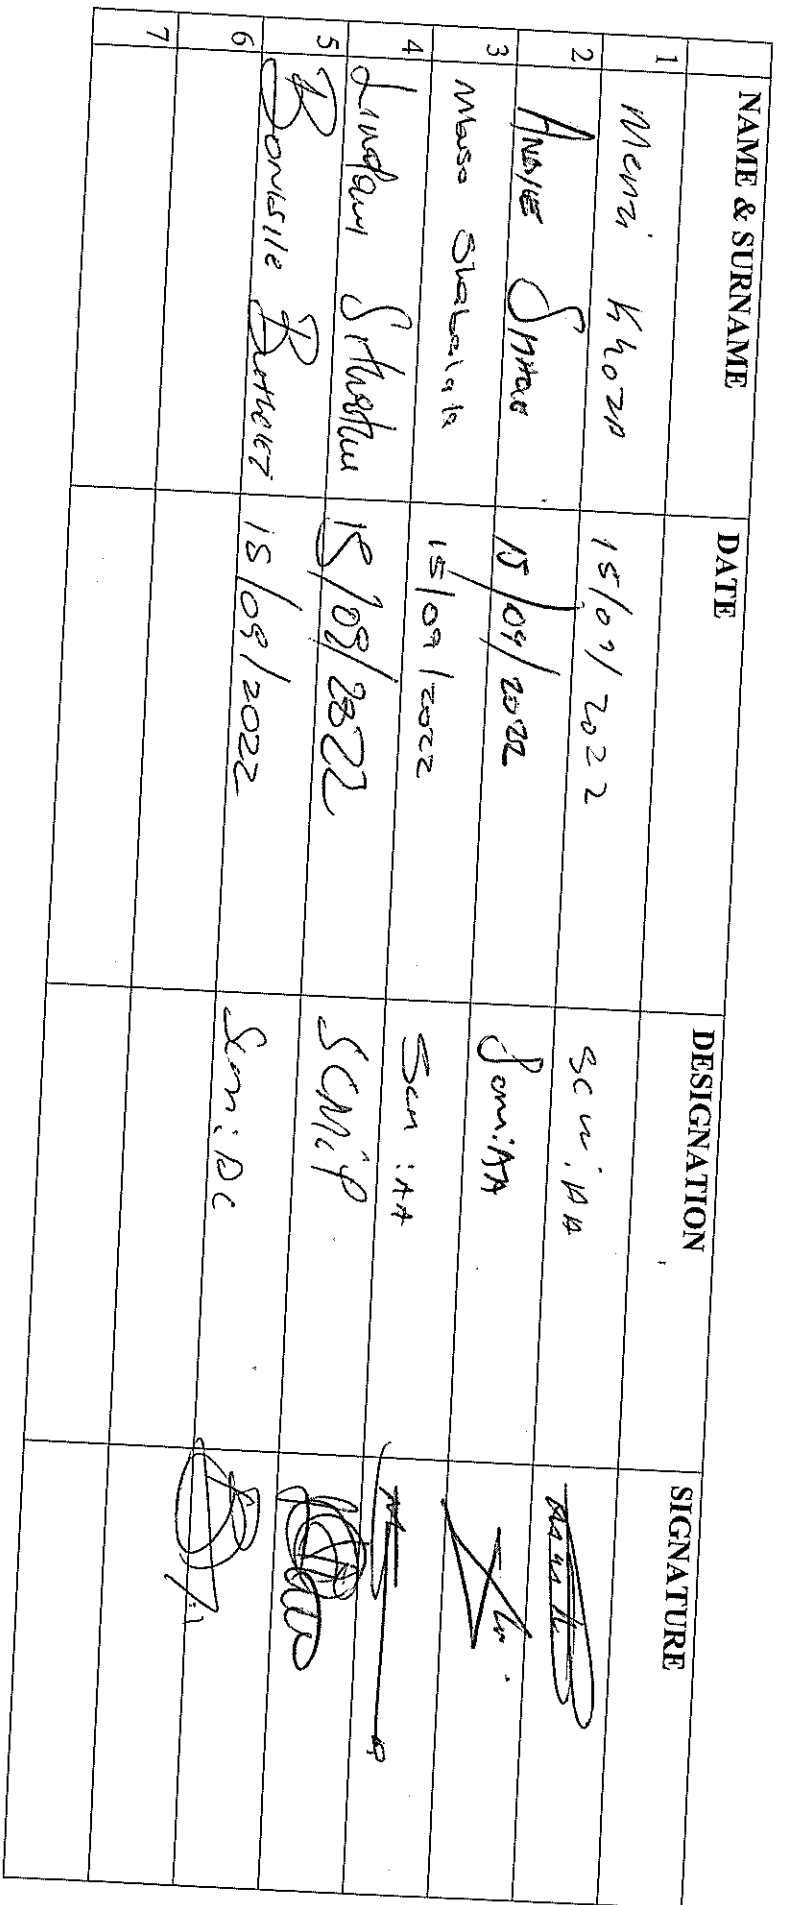 NAME & SURNAME DATE DESIGNATION SIGNATURE
1 Menzi Khoza 15/09/2022 SCM:AA
2 15/09/2022 SCM:AA
3 Mbuso Shabalala 15/09/2022 SCM:AA
4 Lindani Sithole 15/09/2022 SCM:P
5 Bonisile 15/09/2022 SCM:DC
6
7